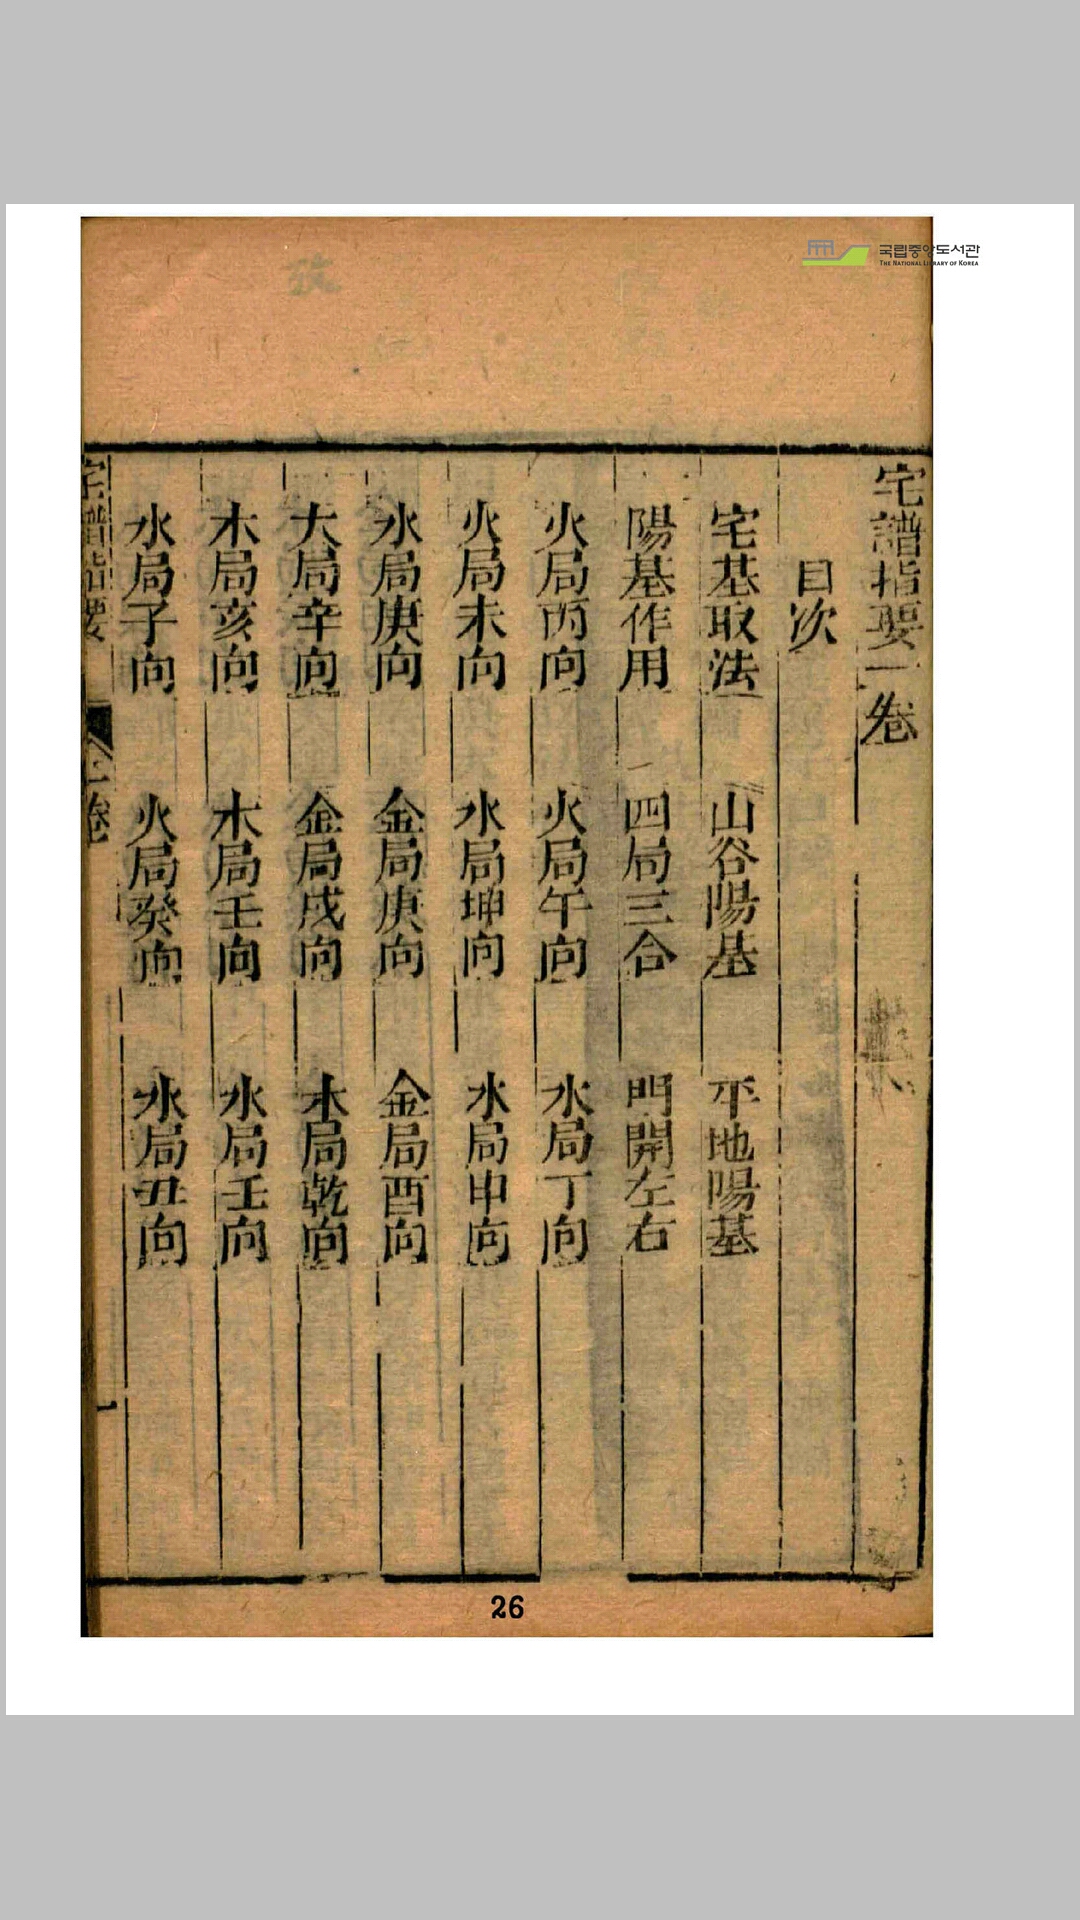 국립중앙도서관
THE NATIONAL LIBRARY OF KOREA
宅譜指要一卷
目次
宅基取法 山谷陽基 平地陽基
陽基作用 四局三合 門開左右
火局丙向 火局午向 水局丁向
火局未向 水局坤向 水局申向
水局庚向 金局庚向 金局酉向
大局辛向 金局戌向 木局乾向
木局亥向 木局壬向 水局壬向
水局子向 火局癸向 水局丑向
宅譜指要 上卷 一
26